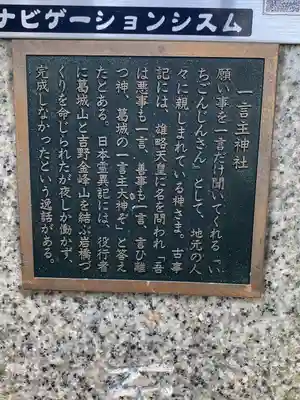 ナビゲーションシスム
一言主神社
願い事を一言だけ聞いてくれる「い
ちごんじんさん」として、地元の人
々に親しまれている神さま。古事
記には、雄略天皇に名を問われ「吾
は悪事も一言、善事も一言、言ひ離
つ神、葛城の一言主大神ぞ」と答え
たとある。日本霊異記には、役行者
に葛城山と吉野金峰山を結ぶ岩橋づ
くりを命じられたが夜しか働かず、
完成しなかったという逸話がある。